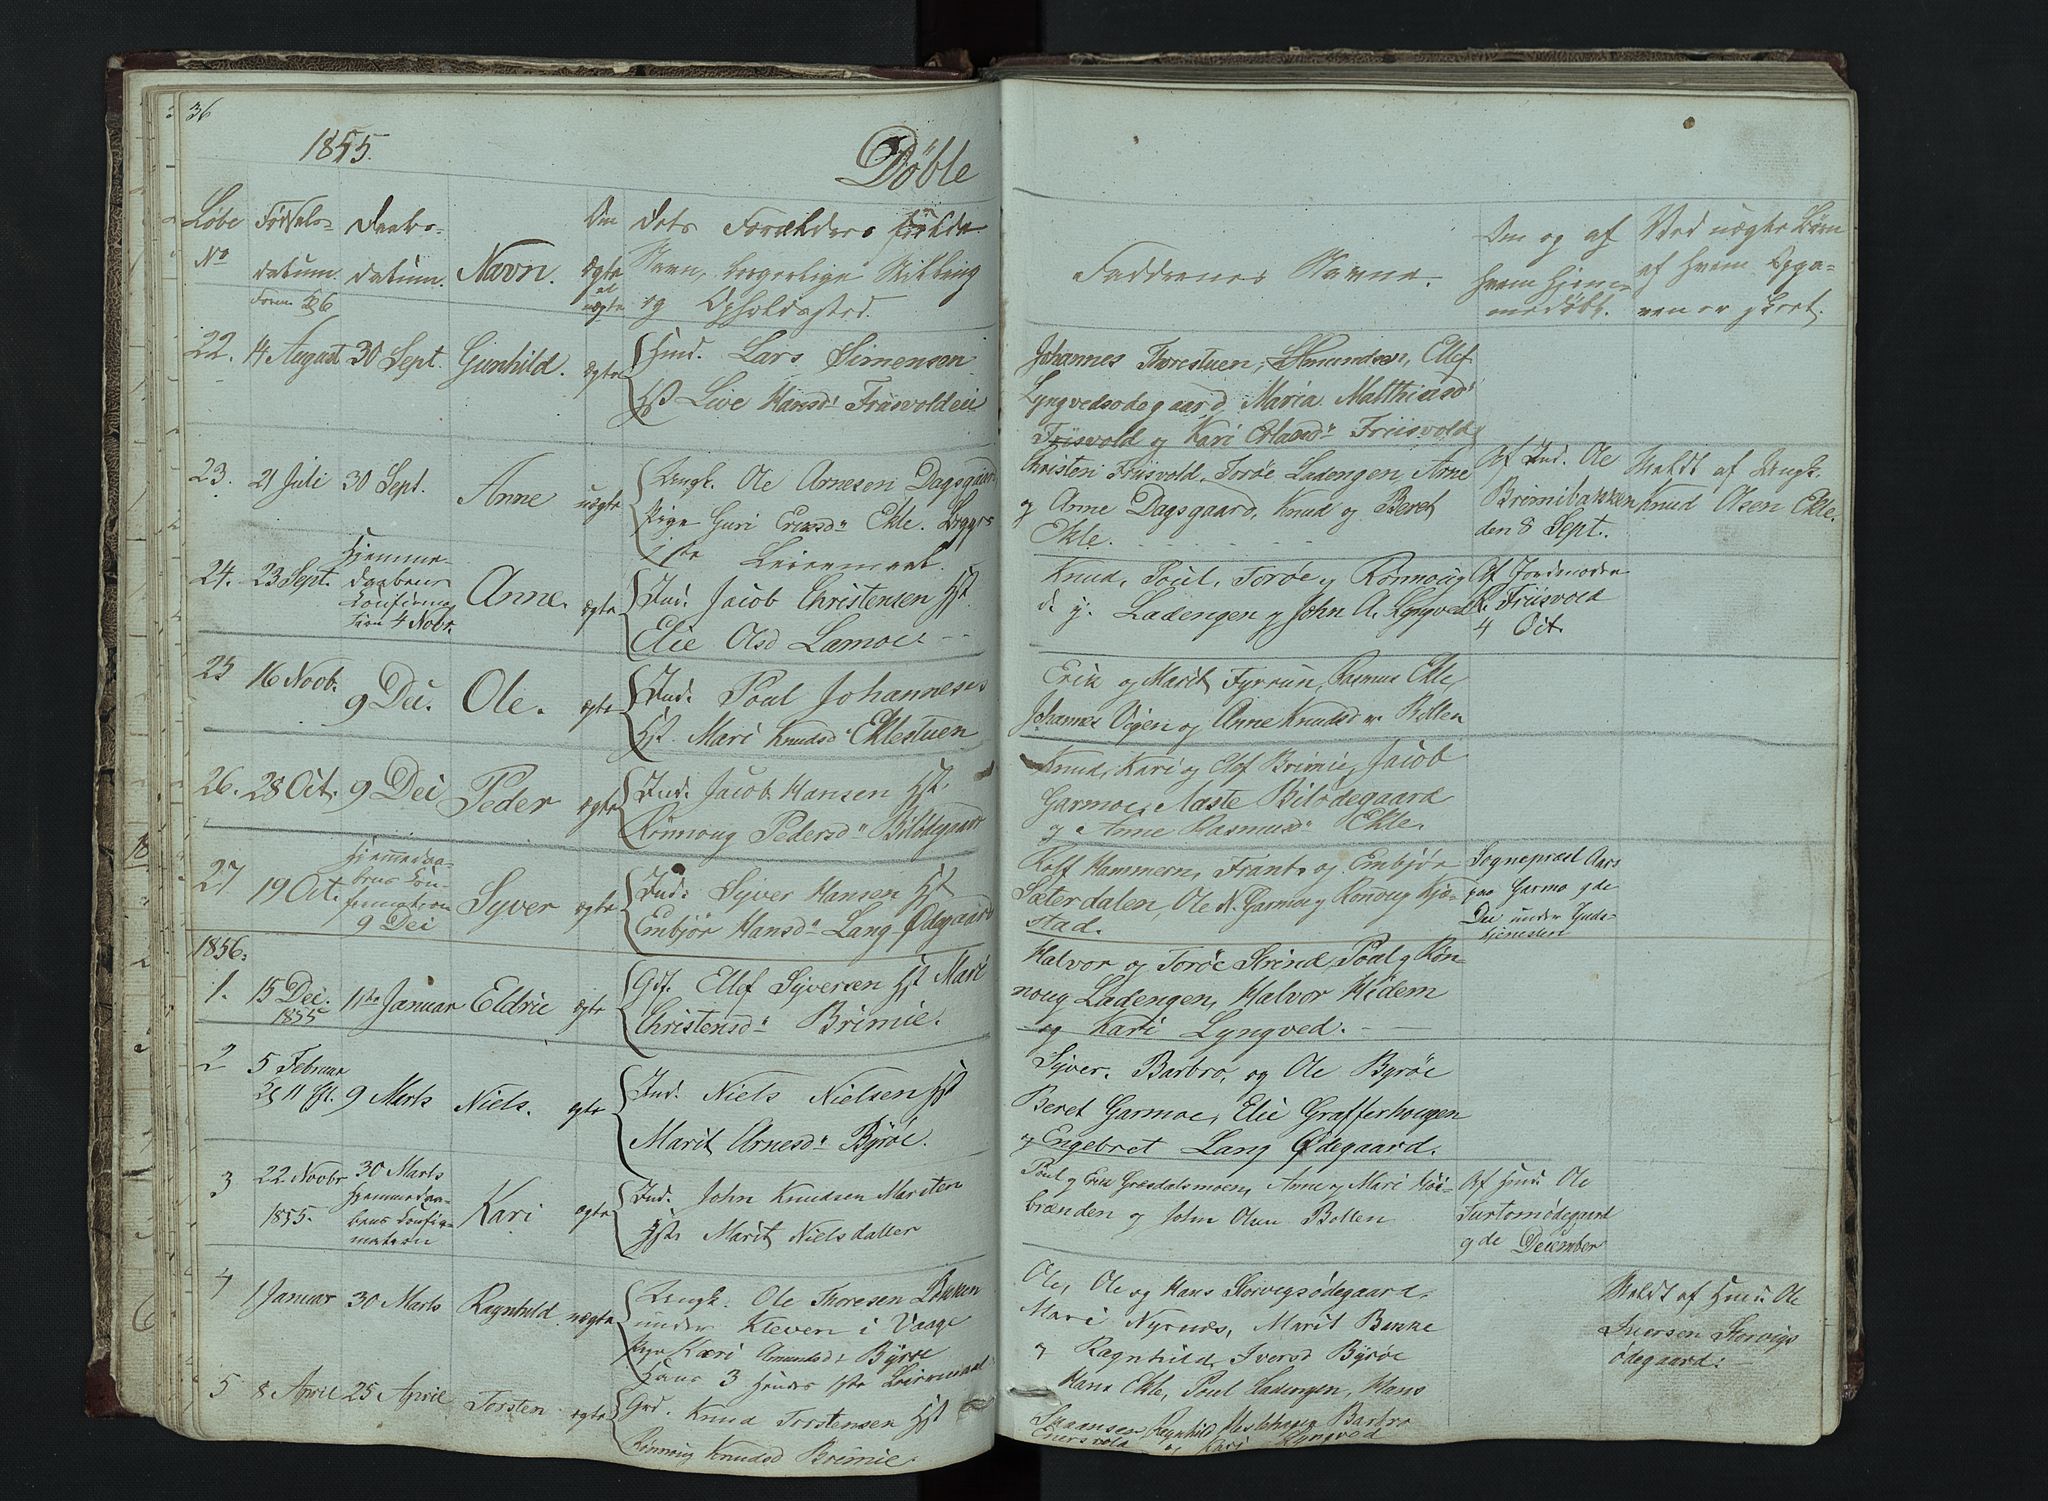 36
1855.
Döbte
Löbe
No
Födsels-
datum
Daabs-
datum.
Navn.
Om
ægte
el
uægte
dets Forældres fulde
Navn, borgerlige Stilling
og Opholdssted.
Faddernes Navne.
Om og af
hvem hjem-
medöbt.
Ved uægte Börn
af hvem Opga-
ven er skeet.
22. 14 August 30 Sept. Gunhild. ægte
Hmd. Lars Simensen
Hst Live Hansd. Friisvoldeie
Johannes Thorestuen, Amundsen, Ellef
Lyngvedsødegaard Maria Matthiasd
Friisvold og Kari Erlandsd Friisvold
23. 21 Juli 30 Sept. Anne uægte
Ungk. Ole Arnesen Dagsgaard
Pige Guri Eriksd Ekle. Begges
1ste Leiermaal.
Christen Friisvold, Toröe Ladengen, Arne
og Anne Dagsgaard, Knud og Beret
Ekle.
Af Ind. Ole
Brimibakken
den 8 Sept.
Meldt af Ungk.
Knud Olsen Ekle.
24. 23 Sept. Hjemme
daabens
Confirma
tion 4 Novbr. Anne. ægte
Ind. Jacob Christensen Hst
Elie Olsd Lamoe.
Knud, Poul, Toröe og Rönnoug
Ladengen og John A. Lyngved
Af Jordmoder
K. Friisvold
4 Oct.
25 16 Novb. 9 Dec. Ole. ægte
Ind. Poul Johannesen
Hst. Mari Knudsd Eklestuen
Erik og Marit Tyrrun, Rasmus Ekle,
Johannes Vigen og Anne Knudsd Bollen
26. 28 Oct. 9 Dec Peder ægte
Ind. Jacob Hansen Hst.
Rönnoug Pedersd Bilödegaard
Knud, Kari og Elef Brimie, Jacob
Garmoe, Aaste Bilödegaard
og Anne Rasmusd Ekle.
27 19 Oct. Hjemmedaa-
bens Con-
firmation
9 Dec Syver ægte
Ind. Syver Hansen Hst
Embjör Hansd Lang Ødegaard
Rolf Hammern, Frants og Embjör
Sæterdalen, Ole N. Garmoe og Rönoug Kjæ-
stad.
Sognepræst Aars
paa Garmo 9de
Dec under Guds-
tjenesten
1856.
1. 15 Dec.
1855 11te Januar Eldrie ægte
Gdf. Ellef Syversen Hst Mari
Christensd Brimie.
Halvor og Toröe Strind, Poul og Rön-
noug Ladengen, Halvor Hidem
og Kari Lyngved.
2 5 Februar
9 Marts Niels. ægte
Ind. Niels Nielsen Hst
Marit Arnesd Byröe.
Syver, Barbro, og Ole Byröe
Beret Garmoe, Elie Grafferhougen
og Engebret Lang Ødegaard.
3 22 Novbr
1855. 30 Marts
Hjemmedaa-
bens Confir-
mation Kari ægte
Ind. John Knudsen Marsten
Hst. Marit Nielsdatter
Poul og Erik Græsdalsmoen, Anne og Mari Höi-
brænden og John Olsen Bollen
Af Hmd. Ole
Turtomödegaard
9de December
4 1 Januar 30 Marts Ragnhild uægte
Ungk. Ole Thoresen Bakken
under Kleven i Vaage
Pige Kari Amundsd. Byröe
Hans 3 Hendes 1ste Leiermaal
Ole, Ole og Hans Storvigsödegaard,
Mari Nyrnæs, Marit Bakke
og Ragnhild Iversd Byröe
Meldt af Hmd Ole
Iversen Storvigs
ödegaard.
5 8 April 25 April Torsten ægte
Gmd. Knud Torstensen Hst
Rönnoug Knudsd Brimie.
Hans Ekle, Poul Ladengen, Hans
Ragnhild Barbro
og Kari Lyngved